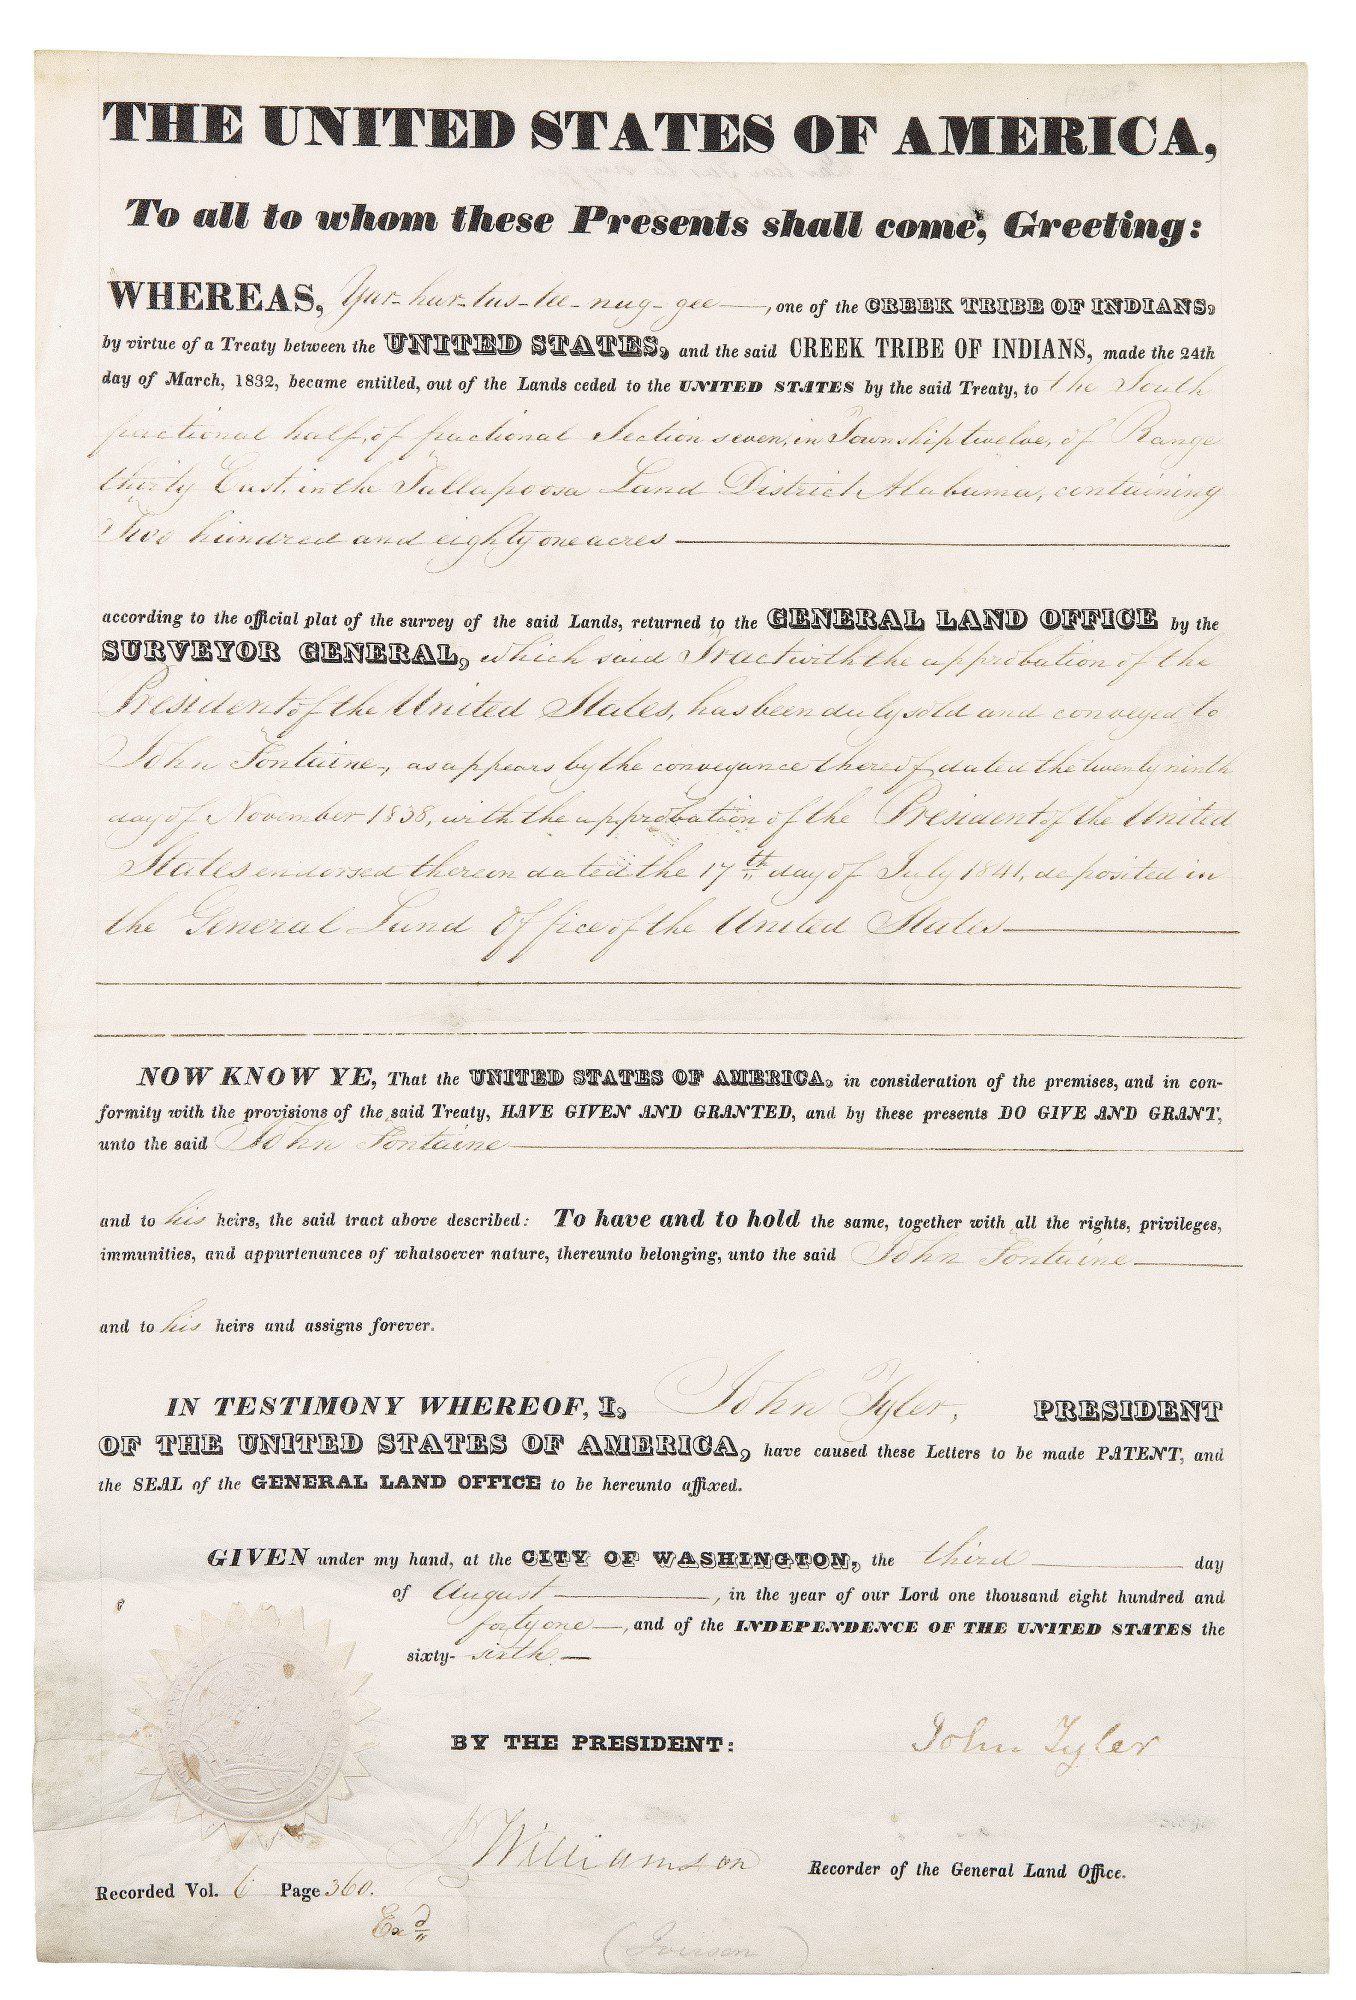 THE UNITED STATES OF AMERICA,
To all to whom these Presents shall come, Greeting:
WHEREAS, Yar-har-tus-tee-nug-gee, one of the CREEK TRIBE OF INDIANS,
by virtue of a Treaty between the UNITED STATES, and the said CREEK TRIBE OF INDIANS, made the 24th
day of March, 1832, became entitled, out of the Lands ceded to the UNITED STATES by the said Treaty, to the South
fractional half, of fractional Section seven, in Township twelve, of Range
thirty East, in the Tallapoosa Land District Alabama, containing
Two hundred and eighty one acres
according to the official plat of the survey of the said Lands, returned to the GENERAL LAND OFFICE by the
SURVEYOR GENERAL, which said Tract with the approbation of the
President of the United States, has been duly sold and conveyed to
John Fontaine, as appears by the conveyance thereof, dated the twenty ninth
day of November 1838, with the approbation of the President of the United
States endorsed thereon dated the 17th day of July 1841, deposited in
the General Land Office of the United States
NOW KNOW YE, That the UNITED STATES OF AMERICA, in consideration of the premises, and in con-
formity with the provisions of the said Treaty, HAVE GIVEN AND GRANTED, and by these presents DO GIVE AND GRANT,
unto the said John Fontaine
and to his heirs, the said tract above described: To have and to hold the same, together with all the rights, privileges,
immunities, and appurtenances of whatsoever nature, thereunto belonging, unto the said John Fontaine
and to his heirs and assigns forever.
IN TESTIMONY WHEREOF, I, John Tyler, PRESIDENT
OF THE UNITED STATES OF AMERICA, have caused these Letters to be made PATENT, and
the SEAL of the GENERAL LAND OFFICE to be hereunto affixed.
GIVEN under my hand, at the CITY OF WASHINGTON, the third day
of August, in the year of our Lord one thousand eight hundred and
forty one, and of the INDEPENDENCE OF THE UNITED STATES the
sixty-sixth.
BY THE PRESIDENT: John Tyler
Williamson Recorder of the General Land Office.
Recorded Vol. 6 Page 360.
Exd
(Iverson)